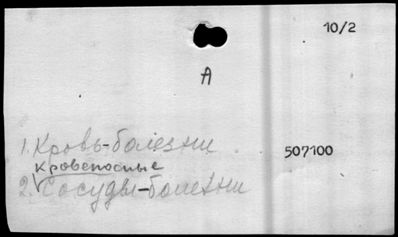 10/2
А
1. Кровь-болезни
507100
кровеносные
2. Сосуды-болезни